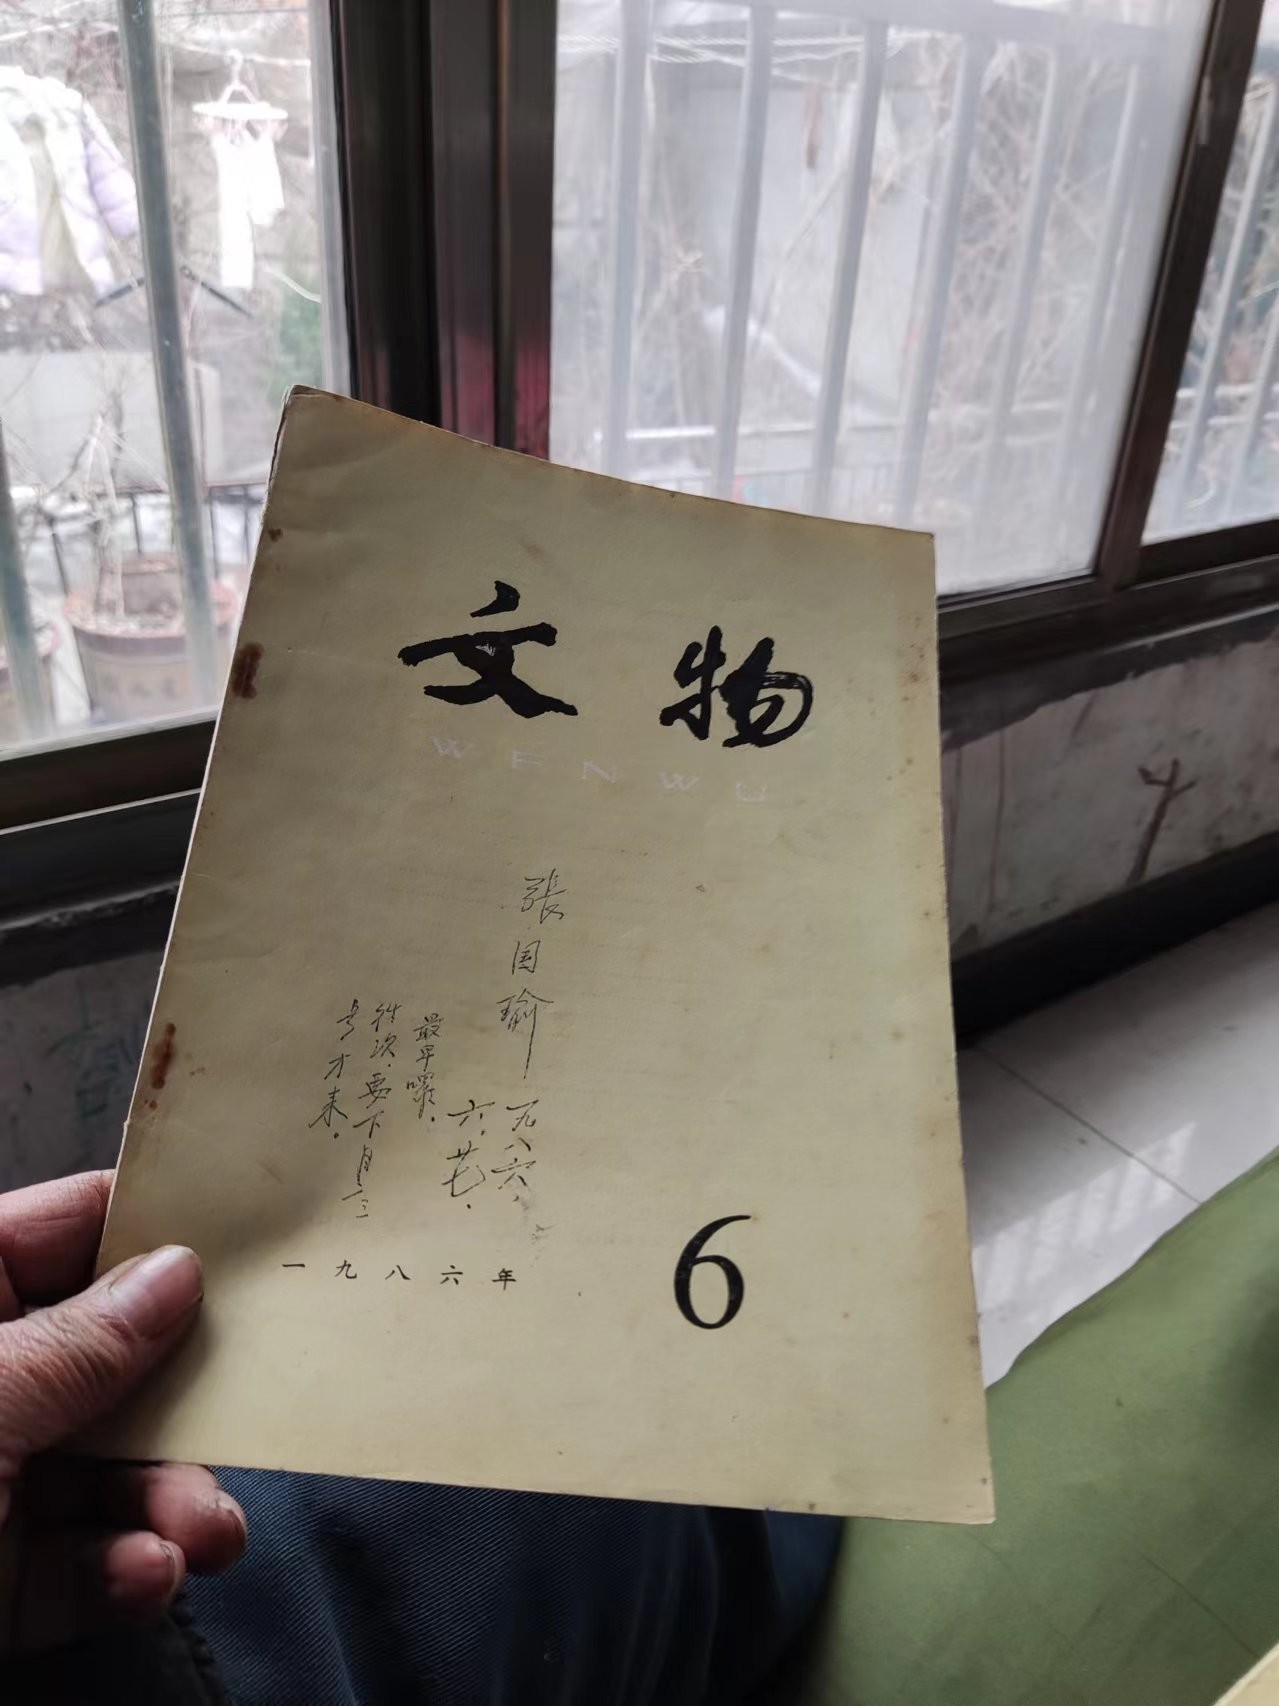 文物
WENWU
張国瑜
一九八六，
六．廿七．
最早嘿，
往次要下月二三
号才来。
一九八六年
6